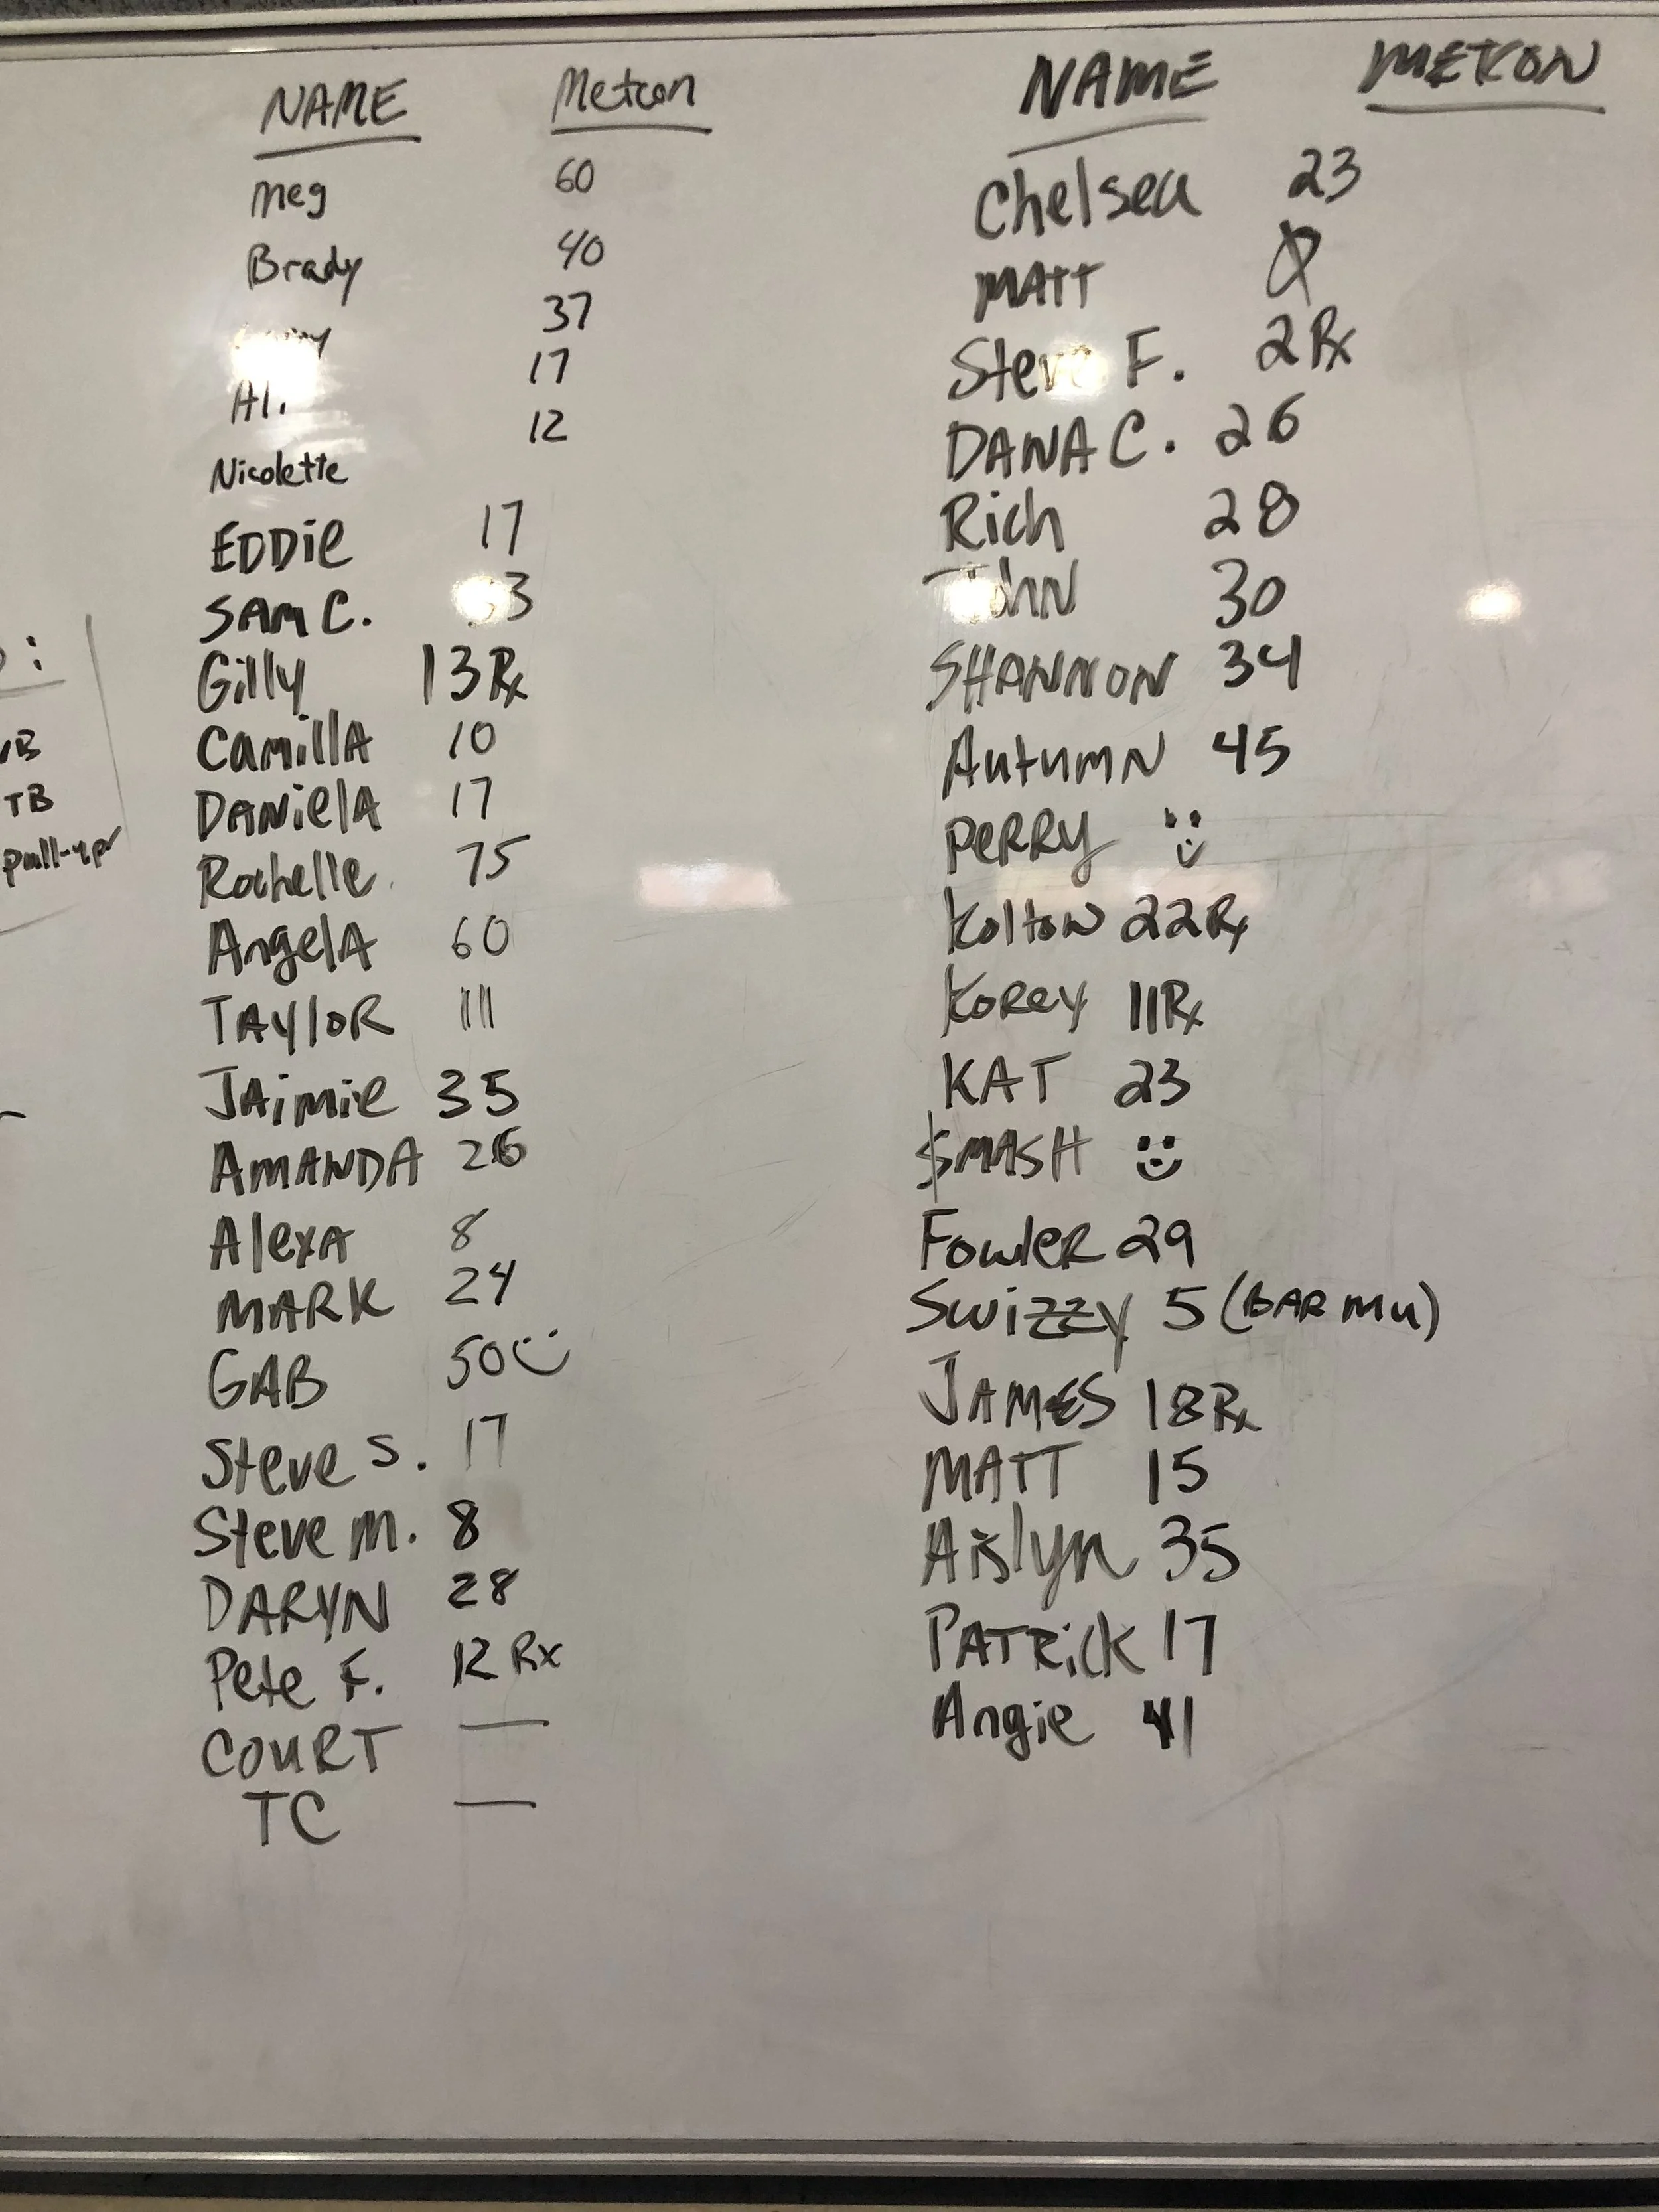 NAME Metcon
Meg 60
Brady 40
37
Al. 17
Nicolette 12
EDDiE 17
SAM C. 3
Gilly 13 Rx
CamillA 10
DANielA 17
Rochelle 75
AngelA 60
TAYloR 111
JAimiE 35
AMANDA 26
AlexA 8
MARK 24
GAB 50
Steve S. 17
Steve M. 8
DARYN 28
Pete F. 12 Rx
COURT —
TC —
NAME METCON
Chelsea 23
MATT Ø
Steve F. 2 Rx
DANA C. 26
Rich 28
JohN 30
SHANNON 34
AutumN 45
PERRY
KoltoN 22 Rx
KoREy 11 Rx
KAT 23
SMASH
FowlER 29
Swizzy 5 (BAR MU)
JAMES 18 Rx
MATT 15
Aislyn 35
PATRiCK 17
Angie 41
:
TB
pull-up